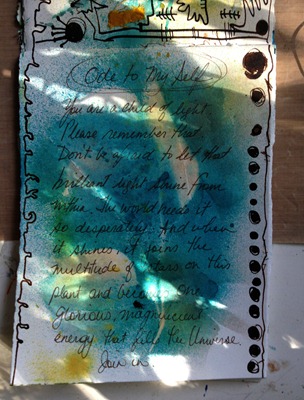 Ode to My Self
You are a child of light.
Please remember that.
Don't be afraid to let that
brilliant light shine from
within. The world needs it
so desperately. And when
it shines, it joins the
multitude of stars on this
plant and becomes one
glorious, magnificent
energy that fills the Universe.
Join in